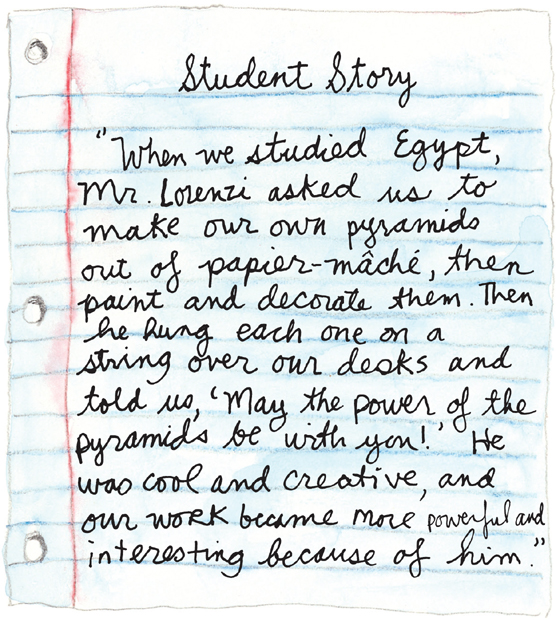 Student Story
"When we studied Egypt,
Mr. Lorenzi asked us to
make our own pyramids
out of papier-mâché, then
paint and decorate them. Then
he hung each one on a
string over our desks and
told us, 'May the power of the
pyramids be with you!' He
was cool and creative, and
our work became more powerful and
interesting because of him."